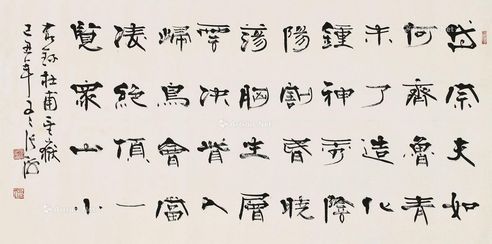 岱宗夫如
何齊魯青
未了造化
鍾神秀陰
陽割昏曉
蕩胸生層
雲決眥入
歸鳥會當
凌絕頂一
覽眾山小
錄杜甫望嶽
己丑年